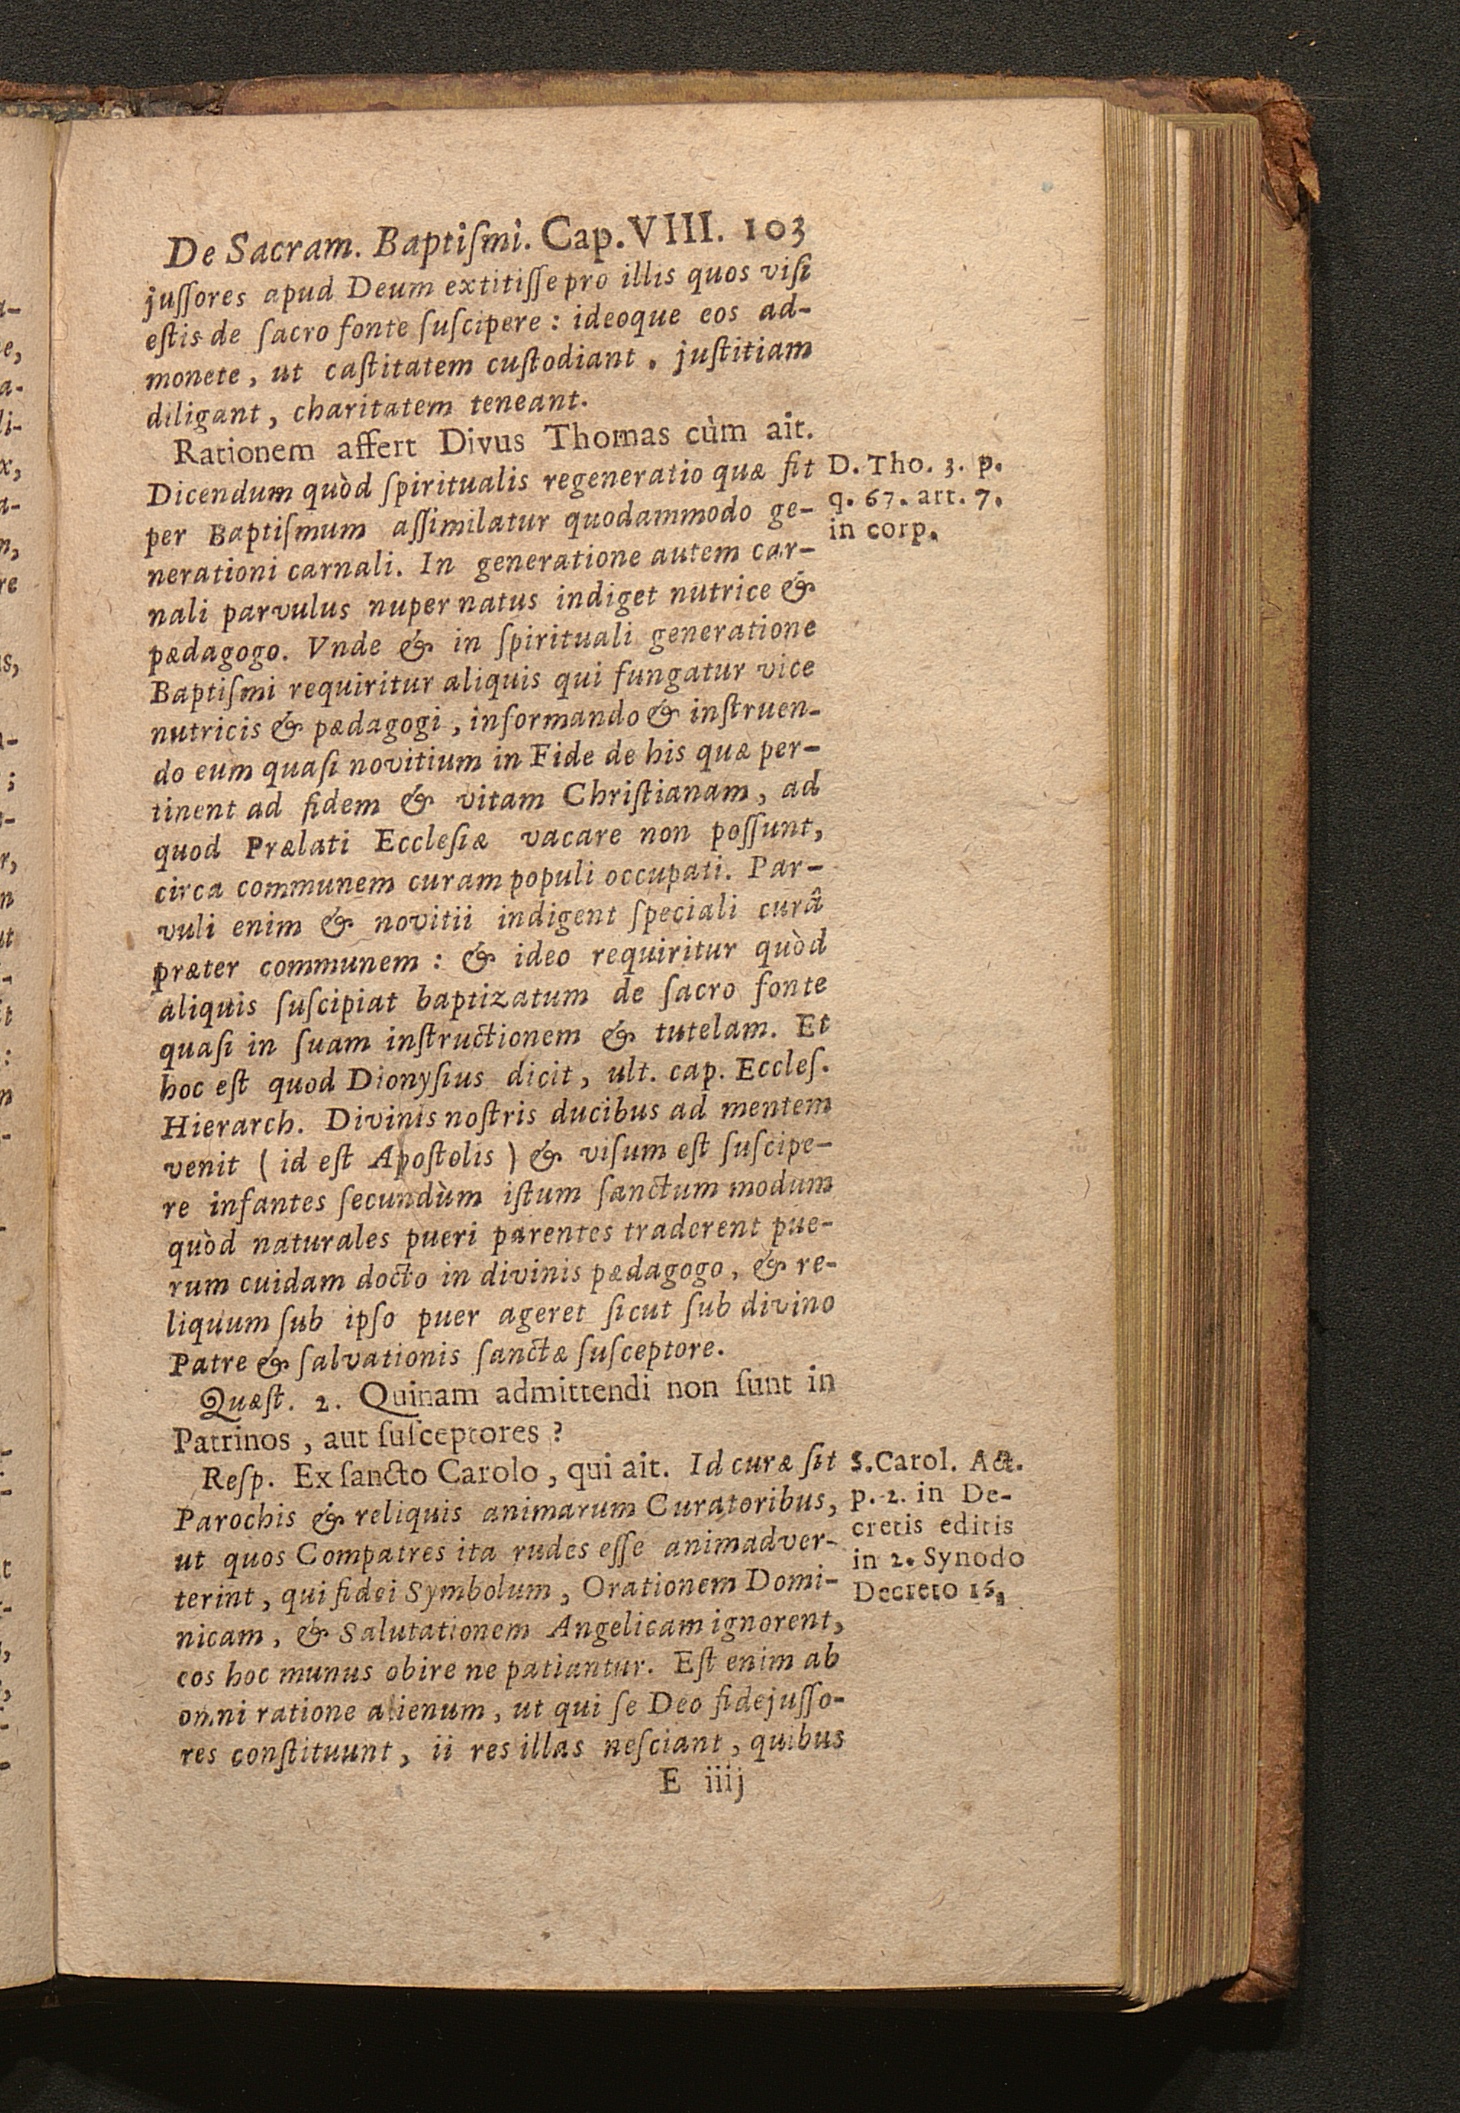 De Sacram. Baptiſmi. Cap. VIII. 103
juſſores apud Deum extitiſſe pro illis quos viſi
eſtis de ſacro fonte ſuſcipere : ideoque eos ad-
monete, ut caſtitatem cuſtodiant, juſtitiam
diligant, charitatem teneant.
Rationem affert Divus Thomas cùm ait.
Dicendum quòd ſpiritualis regeneratio quæ fit
per Baptiſmum aſſimilatur quodammodo ge-
nerationi carnali. In generatione autem car-
nali parvulus nuper natus indiget nutrice &
pædagogo. Vnde & in ſpirituali generatione
Baptiſmi requiritur aliquis qui fungatur vice
nutricis & pædagogi, informando & inſtruen-
do eum quaſi novitium in Fide de his quæ per-
tinent ad fidem & vitam Chriſtianam, ad
quod Prælati Eccleſiæ vacare non poſſunt,
circa communem curam populi occupati. Par-
vuli enim & novitii indigent ſpeciali curâ
præter communem : & ideo requiritur quòd
aliquis ſuſcipiat baptizatum de ſacro fonte
quaſi in ſuam inſtructionem & tutelam. Et
hoc eſt quod Dionyſius dicit, ult. cap. Eccleſ.
Hierarch. Divinis noſtris ducibus ad mentem
venit ( id eſt Apoſtolis ) & viſum eſt ſuſcipe-
re infantes ſecundùm iſtum ſanctum modum
quòd naturales pueri parentes traderent pue-
rum cuidam docto in divinis pædagogo, & re-
liquum ſub ipſo puer ageret ſicut ſub divino
Patre & ſalvationis ſanctæ ſuſceptore.
Quæſt. 2. Quinam admittendi non ſunt in
Patrinos, aut ſuſceptores ?
Reſp. Ex ſancto Carolo, qui ait. Id curæ ſit
Parochis & reliquis animarum Curatoribus,
ut quos Compatres ita rudes eſſe animadver-
terint, qui fidei Symbolum, Orationem Domi-
nicam, & Salutationem Angelicam ignorent,
eos hoc munus obire ne patiantur. Eſt enim ab
omni ratione alienum, ut qui ſe Deo fidejuſſo-
res conſtituunt, ii res illas neſciant, quibus
E iiij
D. Tho. 3. p.
q. 67. art. 7.
in corp.
S. Carol. Act.
p. 2. in De-
cretis editis
in 2. Synodo
Decreto